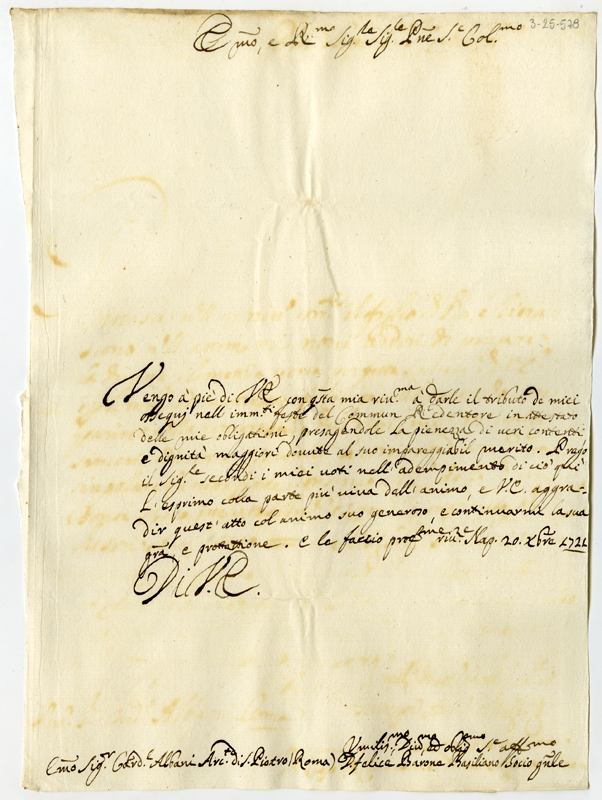 3-25-578
Emo, e R.mo Sig.le Sig.e Pne S.e Col.mo
Vengo à piè di VE con qsta mia riv.ma a darle il tributo de miei
ossequj nell imm.ti feste del Commun Redentore in attestato
delle mie obligationi, presagendole la pienezza di veri contenti
e dignità maggiori dovute al suo impareggiabil merito. Prego
il Sig.re secondi i miei voti nell'adempimento di ciò, qui
L'esprimo colla parte più viva dell'animo, e V.E. aggra-
dir quest'atto col animo suo generoso, e continuarmi la sua
gra, e protettione. E le faccio prof.me riv.ze Nap. 20. Xbre 1721
Di V.E.
Humilis.mo Div.mo ed oblig.mo S.e aff.mo
Emo Sig.r Card.e Albani Arc.te di S. Pietro (Roma) D. felice Barone Basiliano Socio gnle